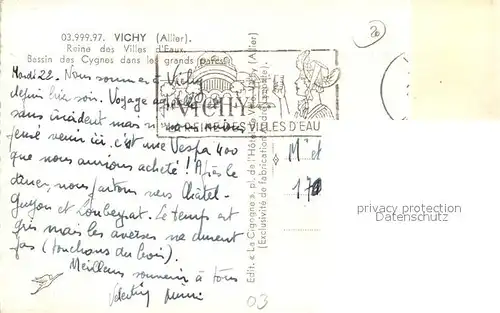 03.999.97. VICHY (Allier).
Reine des Villes d'Eaux.
Bassin des Cygnes dans les grands parcs.
Mardi 22. Nous sommes à Vichy
depuis hier soir. Voyage
sans incident mais
venir ici. c'est une Vespa 400
que nous aurions acheté ! Après le
dîner, nous partons vers Châtel-
Guyon et Loubeyrat. Le temps est
gris mais les averses ne durent
pas (touchons du bois).
Meilleurs souvenirs à tous
VICHY
LA REINE DES VILLES D'EAU
Edit. « La Cigogne », pl. de l'Hôtel Vichy (Allier)
(Exclusivité de fabrication
M. et
170
privacy protection
Datenschutz
03
20